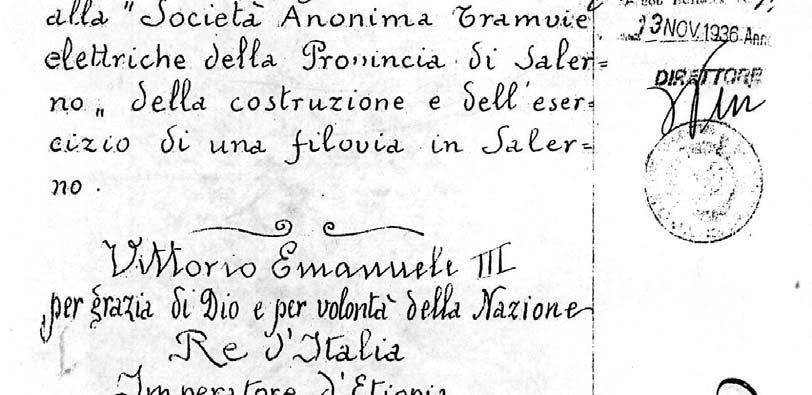 alla "Società Anonima Tramvie
elettriche della Provincia di Saler=
no„ della costruzione e dell'eser=
cizio di una filovia in Saler=
no.
Vittorio Emanuele III
per grazia di Dio e per volontà della Nazione
Re d'Italia
Imperatore d'Etiopia
13 NOV. 1936 Anno
DIRETTORE